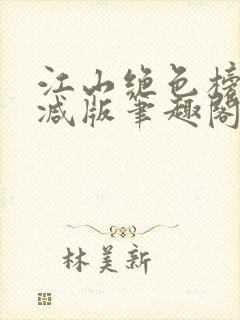 江山绝色榜
减版笔趣阁
林美新